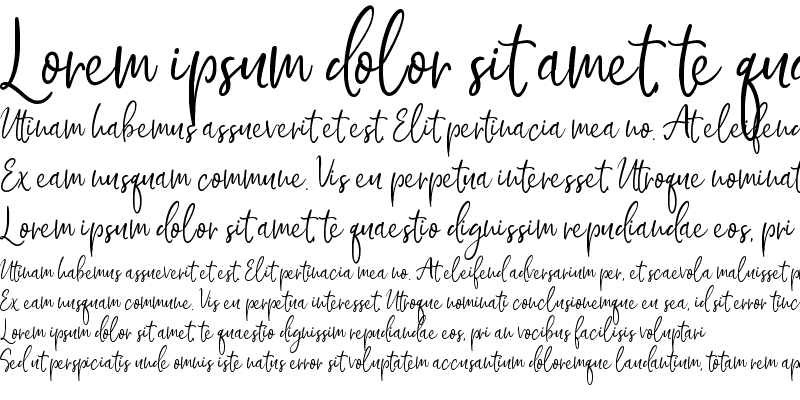 Lorem ipsum dolor sit amet, te qua
Utinam habemus assueverit et est. Elit pertinacia mea no. At eleifend
Ex eam nusquam commune. Vis eu perpetua interesset. Utroque nominat
Lorem ipsum dolor sit amet, te quaestio dignissim repudiandae eos, pri
Utinam habemus assueverit et est. Elit pertinacia mea no. At eleifend adversarium per, et scaevola maluisset p
Ex eam nusquam commune. Vis eu perpetua interesset. Utroque nominati conclusionemque eu sea, id sit error tinc
Lorem ipsum dolor sit amet, te quaestio dignissim repudiandae eos, pri an vocibus facilisis voluptari
Sed ut perspiciatis unde omnis iste natus error sit voluptatem accusantium doloremque laudantium, totam rem ap